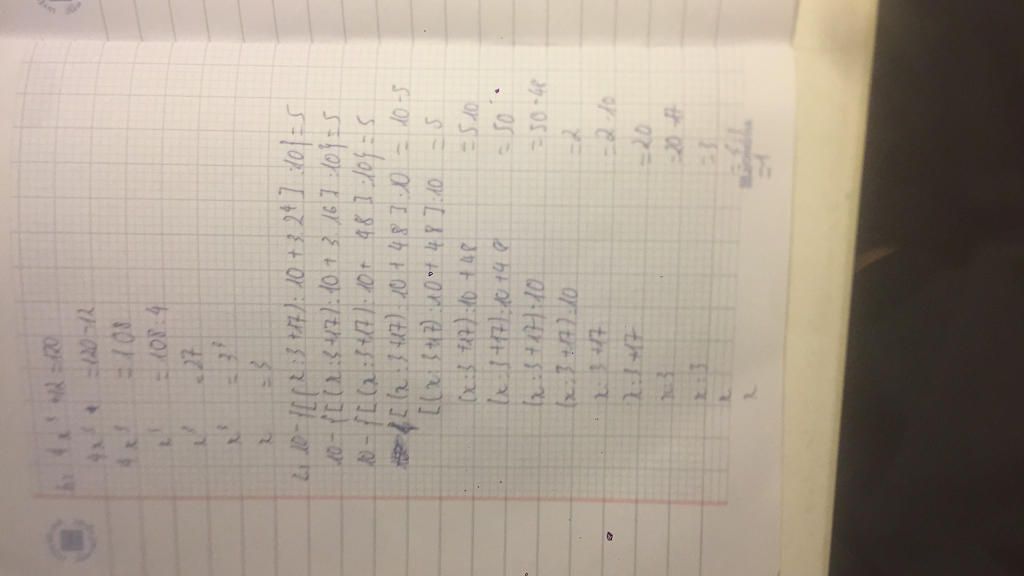 b, 4x³ + 12 = 120
4x³ = 120 - 12
4x³ = 108
x³ = 108 : 4
x³ = 27
x³ = 3³
x = 3
10 - {[(x : 3 + 17) : 10 + 3.2⁴] : 10} = 5
10 - {[(x : 3 + 17) : 10 + 3.16] : 10} = 5
10 - {[(x : 3 + 17) : 10 + 48] : 10} = 5
[(x : 3 + 17) : 10 + 48] : 10 = 10 - 5
[(x : 3 + 17) : 10 + 48] : 10 = 5
(x : 3 + 17) : 10 + 48 = 5.10
(x : 3 + 17) : 10 + 48 = 50
(x : 3 + 17) : 10 = 50 - 48
(x : 3 + 17) : 10 = 2
x : 3 + 17 = 2.10
x : 3 + 17 = 20
x : 3 = 20 - 17
x : 3 = 3
x
x